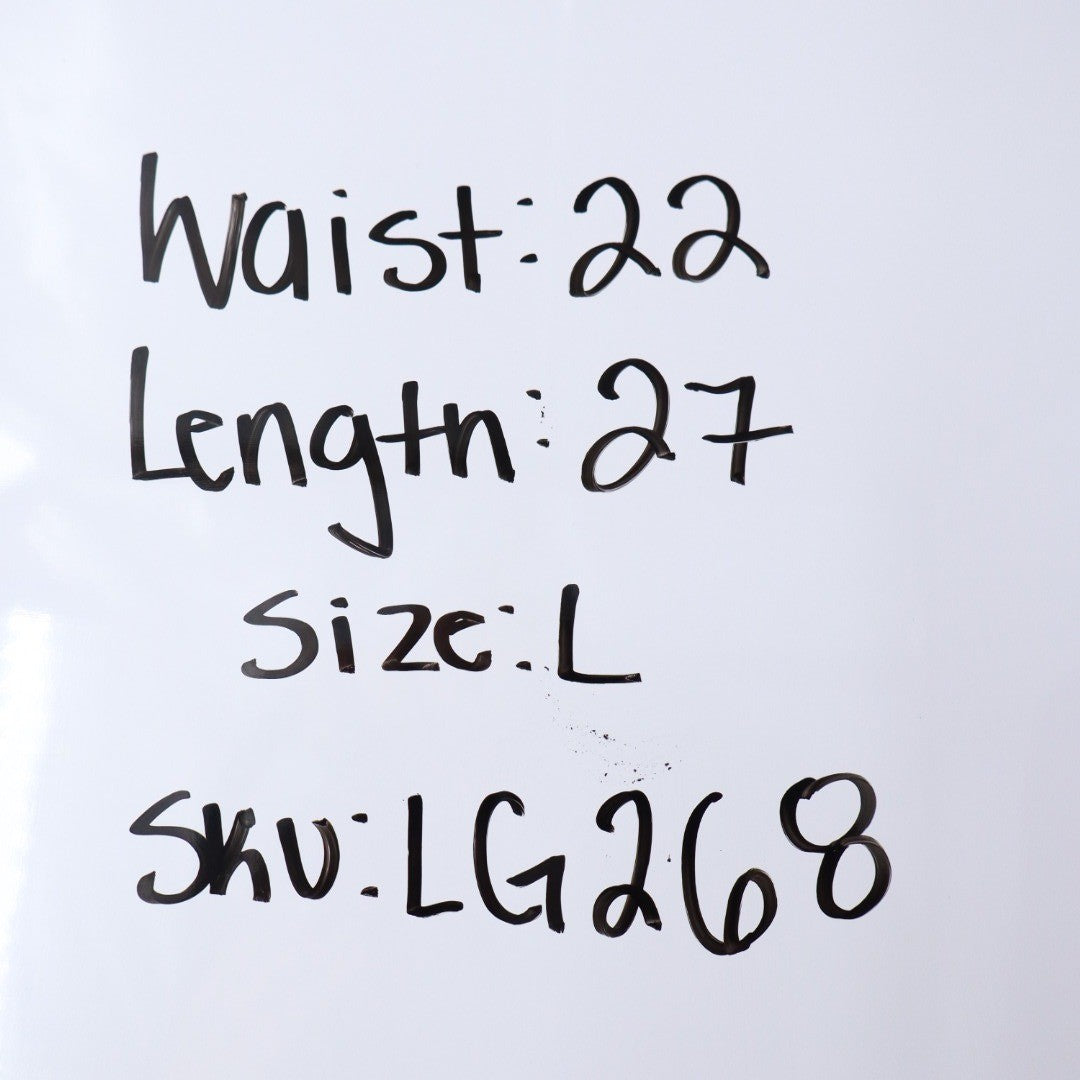 Waist: 22
Length: 27
Size: L
SKU: LG268